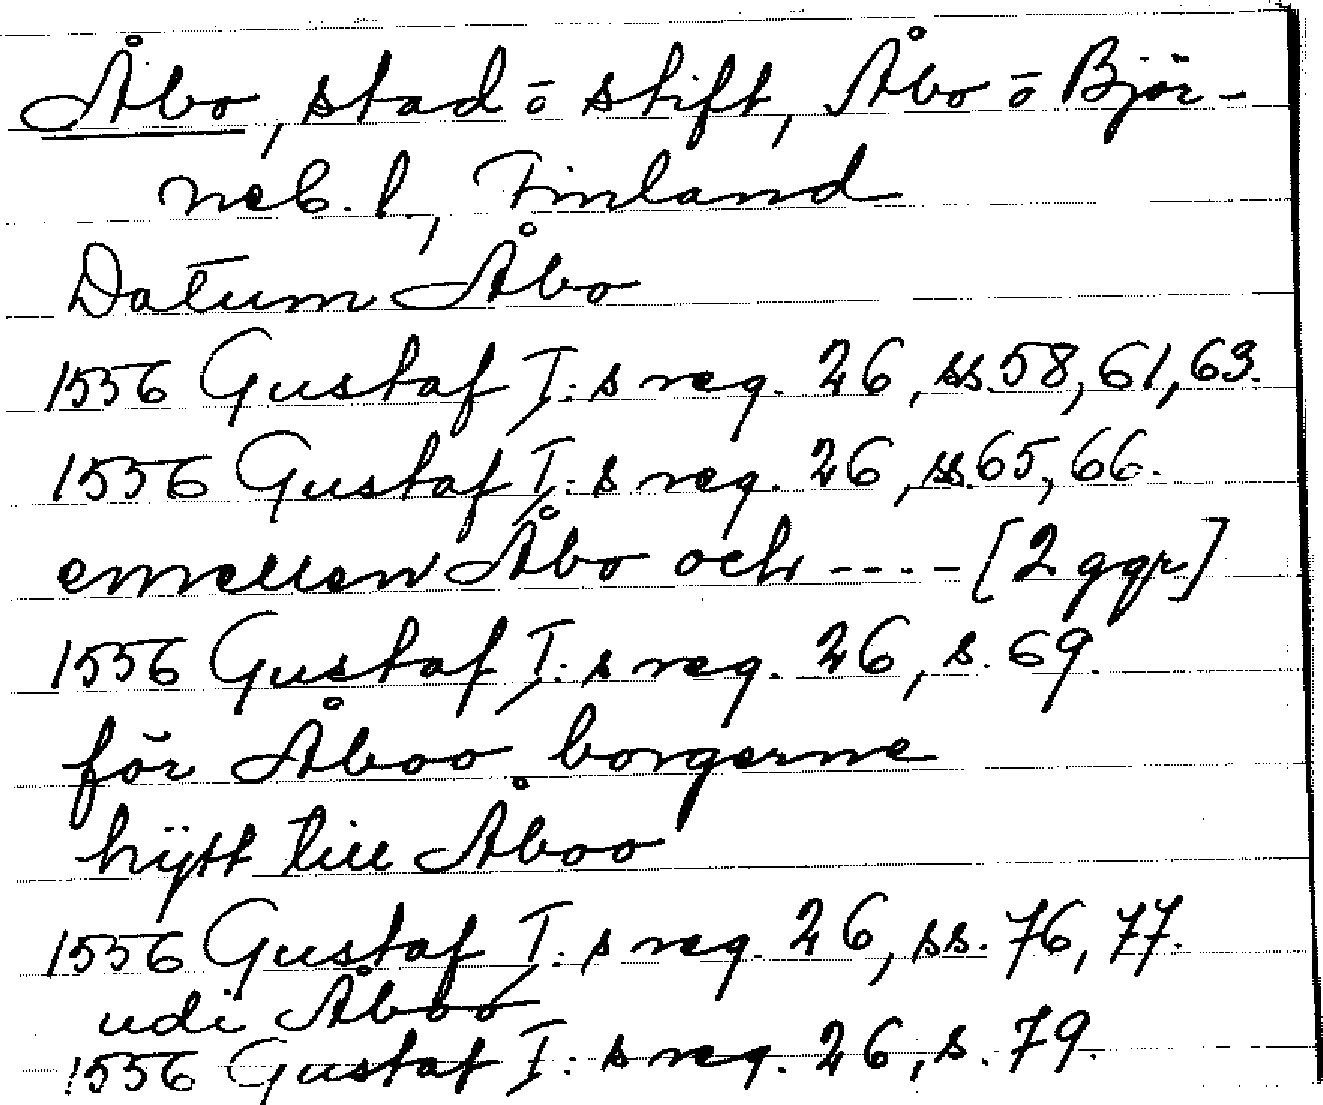 Åbo, stad ō stift, Åbo ō Björ-
neb. l., Finland
Datum Åbo
1556 Gustaf I:s reg. 26, ss. 58, 61, 63.
1556 Gustaf I:s reg. 26, ss. 65, 66.
emellen Åbo och ---- [2 ggr]
1556 Gustaf I:s reg. 26, s. 69.
för Åboo borgerne
hÿtt till Åboo
1556 Gustaf I:s reg. 26, ss. 76, 77.
udi Åboo
1556 Gustaf I:s reg. 26, s. 79.